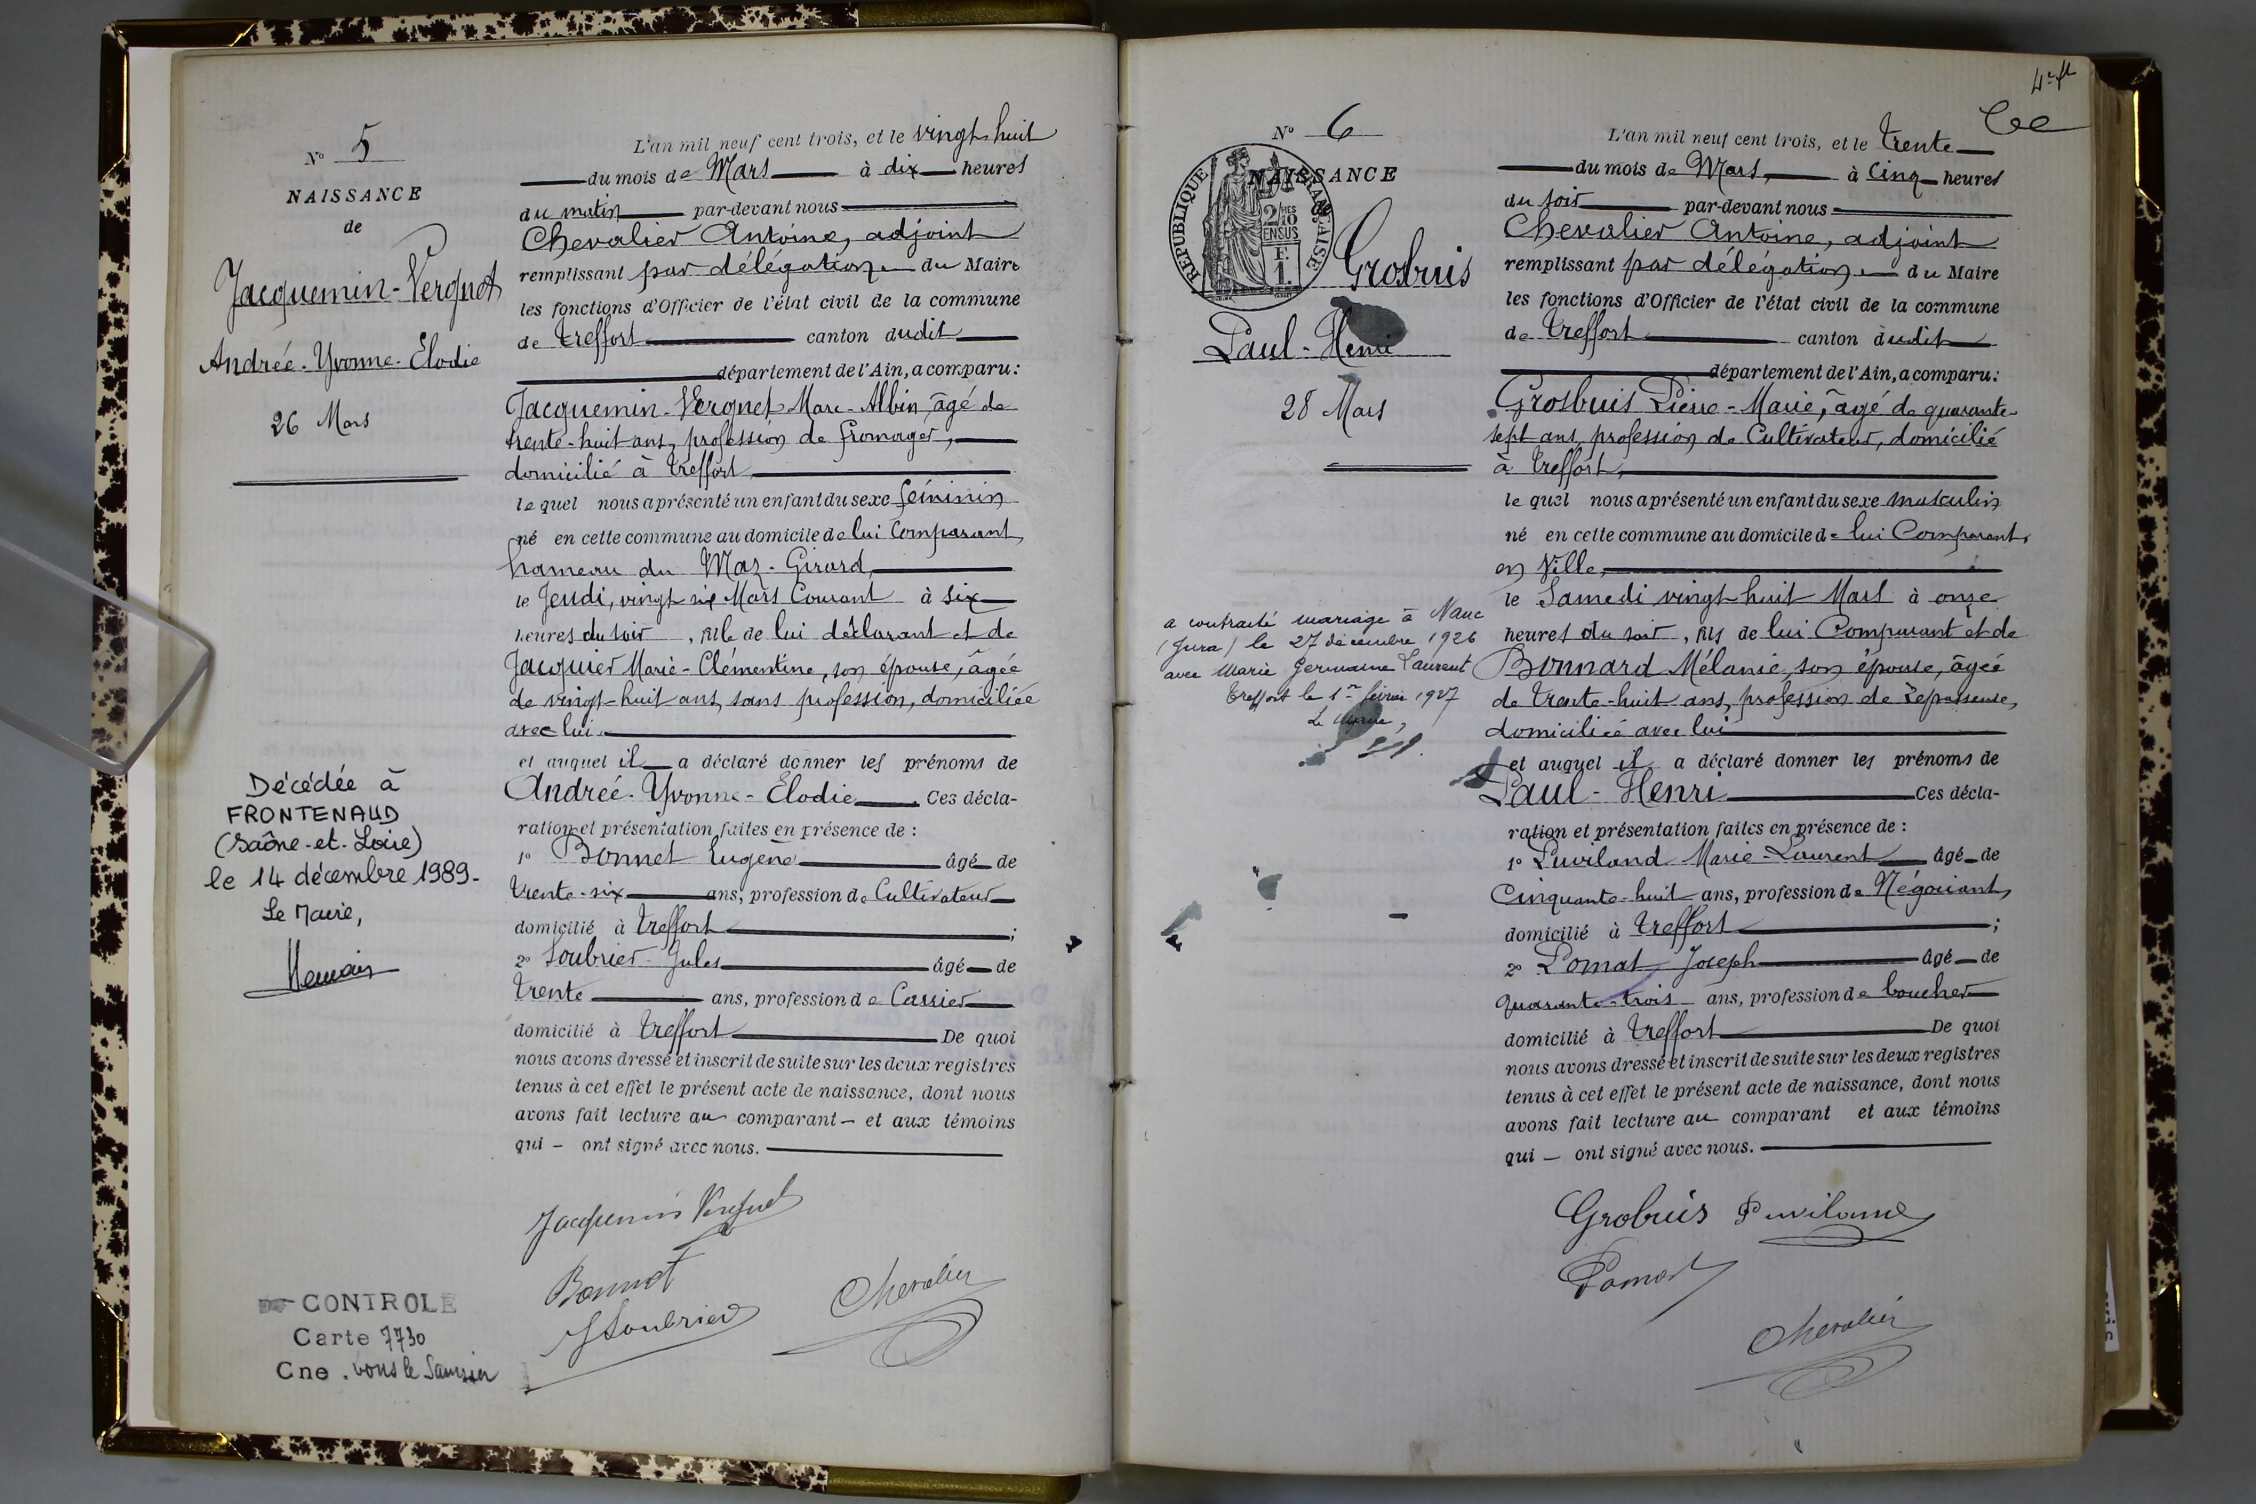 N° 5
NAISSANCE
de
Jacquemin-Vergnet
Andrée-Yvonne-Elodie
26 Mars
Décédée à
FRONTENAUD
(Saône-et-Loire)
le 14 décembre 1989-
Le Maire,
CONTROLE
Carte 7730
Cne. Lons le Saunier
L'an mil neuf cent trois, et le vingt huit
du mois de Mars à dix heures
du matin par-devant nous
Chevalier Antoine, adjoint
remplissant par délégation du Maire
les fonctions d'Officier de l'état civil de la commune
de Treffort canton dudit
département de l'Ain, a comparu:
Jacquemin-Vergnet Marc-Albin, âgé de
trente-huit ans, profession de fromager,
domicilié à Treffort,
le quel nous a présenté un enfant du sexe féminin
né en cette commune au domicile de lui Comparant,
hameau du Maz-Girard,
le Jeudi, vingt six Mars Courant à six
heures du soir, fille de lui déclarant et de
Jacquier Marie-Clémentine, son épouse, âgée
de vingt-huit ans, sans profession, domiciliée
avec lui.
et auquel il a déclaré donner les prénoms de
Andrée-Yvonne-Elodie. Ces décla-
ration et présentation faites en présence de :
1° Bonnet Eugène âgé de
trente-six ans, profession de Cultivateur
domicilié à Treffort ;
2° Soubrier Jules âgé de
trente ans, profession de Carrier
domicilié à Treffort De quoi
nous avons dressé et inscrit de suite sur les deux registres
tenus à cet effet le présent acte de naissance, dont nous
avons fait lecture au comparant et aux témoins
qui - ont signé avec nous.
Jacquemin Vergnet
Bonnet
J Soubrier
Chevalier
N° 6
NAISSANCE
de
REPUBLIQUE FRANÇAISE
2/10 EN SUS
F. 1.
Grobuis
Paul-Henri
28 Mars
a contracté mariage à Nanc
(Jura) le 27 décembre 1926
avec Marie Germaine Laurent
Treffort le 1er février 1927
Le Maire,
L'an mil neuf cent trois, et le trente
du mois de Mars, à Cinq heures
du soir par-devant nous
Chevalier Antoine, adjoint
remplissant par délégation du Maire
les fonctions d'Officier de l'état civil de la commune
de Treffort canton dudit
département de l'Ain, a comparu:
Grosbuis Pierre-Marie, âgé de quarante-
sept ans, profession de Cultivateur, domicilié
à Treffort,
le quel nous a présenté un enfant du sexe masculin
né en cette commune au domicile de lui Comparant,
en Ville,
le Samedi vingt huit Mars à onze
heures du soir, fils de lui Comparant et de
Bonnard Mélanie, son épouse, âgée
de trente-huit ans, profession de repasseuse,
domiciliée avec lui
et auquel il a déclaré donner les prénoms de
Paul-Henri Ces décla-
ration et présentation faites en présence de :
1° Puviland Marie-Laurent âgé de
Cinquante-huit ans, profession de Négociant,
domicilié à Treffort ;
2° Pomat Joseph âgé de
quarante-trois ans, profession de boucher
domicilié à Treffort De quoi
nous avons dressé et inscrit de suite sur les deux registres
tenus à cet effet le présent acte de naissance, dont nous
avons fait lecture au comparant et aux témoins
qui - ont signé avec nous.
Grobuis Puviland
Pomat
Chevalier